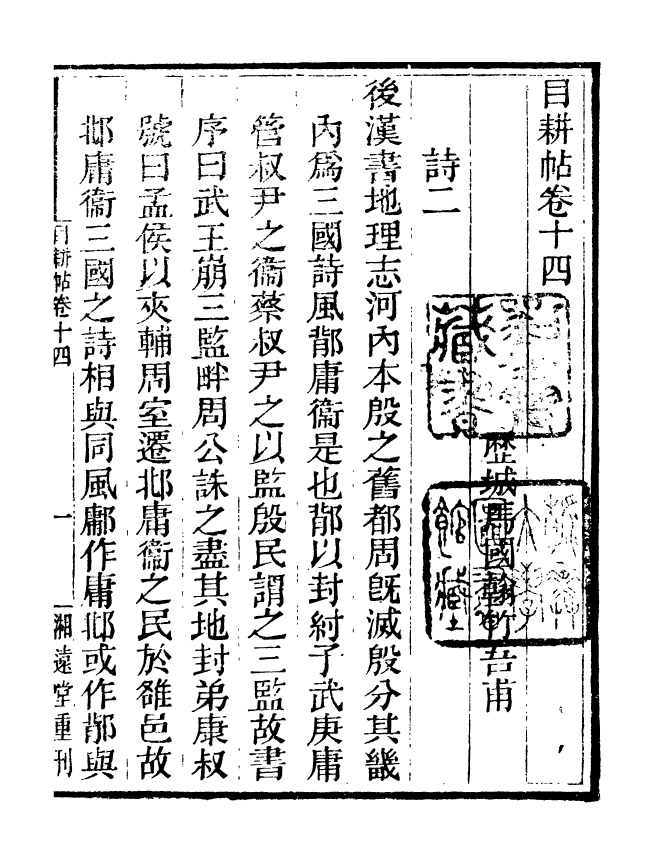 目耕帖卷十四
歷城馬國翰竹吾甫
詩二
後漢書地理志河內本殷之舊都周旣滅殷分其畿
內爲三國詩風鄁庸衞是也鄁以封紂子武庚庸
管叔尹之衞蔡叔尹之以監殷民謂之三監故書
序曰武王崩三監畔周公誅之盡其地封弟康叔
號曰孟侯以夾輔周室遷邶庸衞之民於雒邑故
邶庸衞三國之詩相與同風鄘作庸邶或作鄁與
目耕帖卷十四 一 湘遠堂重刊
藏書
館藏